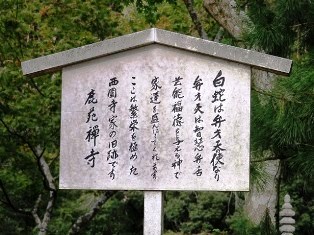 白蛇は弁才天使なり
弁才天は智慧弁舌
芸能福徳を与る神で
家運を盛にしてくれます
ここは繁栄を極めた
西園寺家の旧跡です
鹿苑禅寺